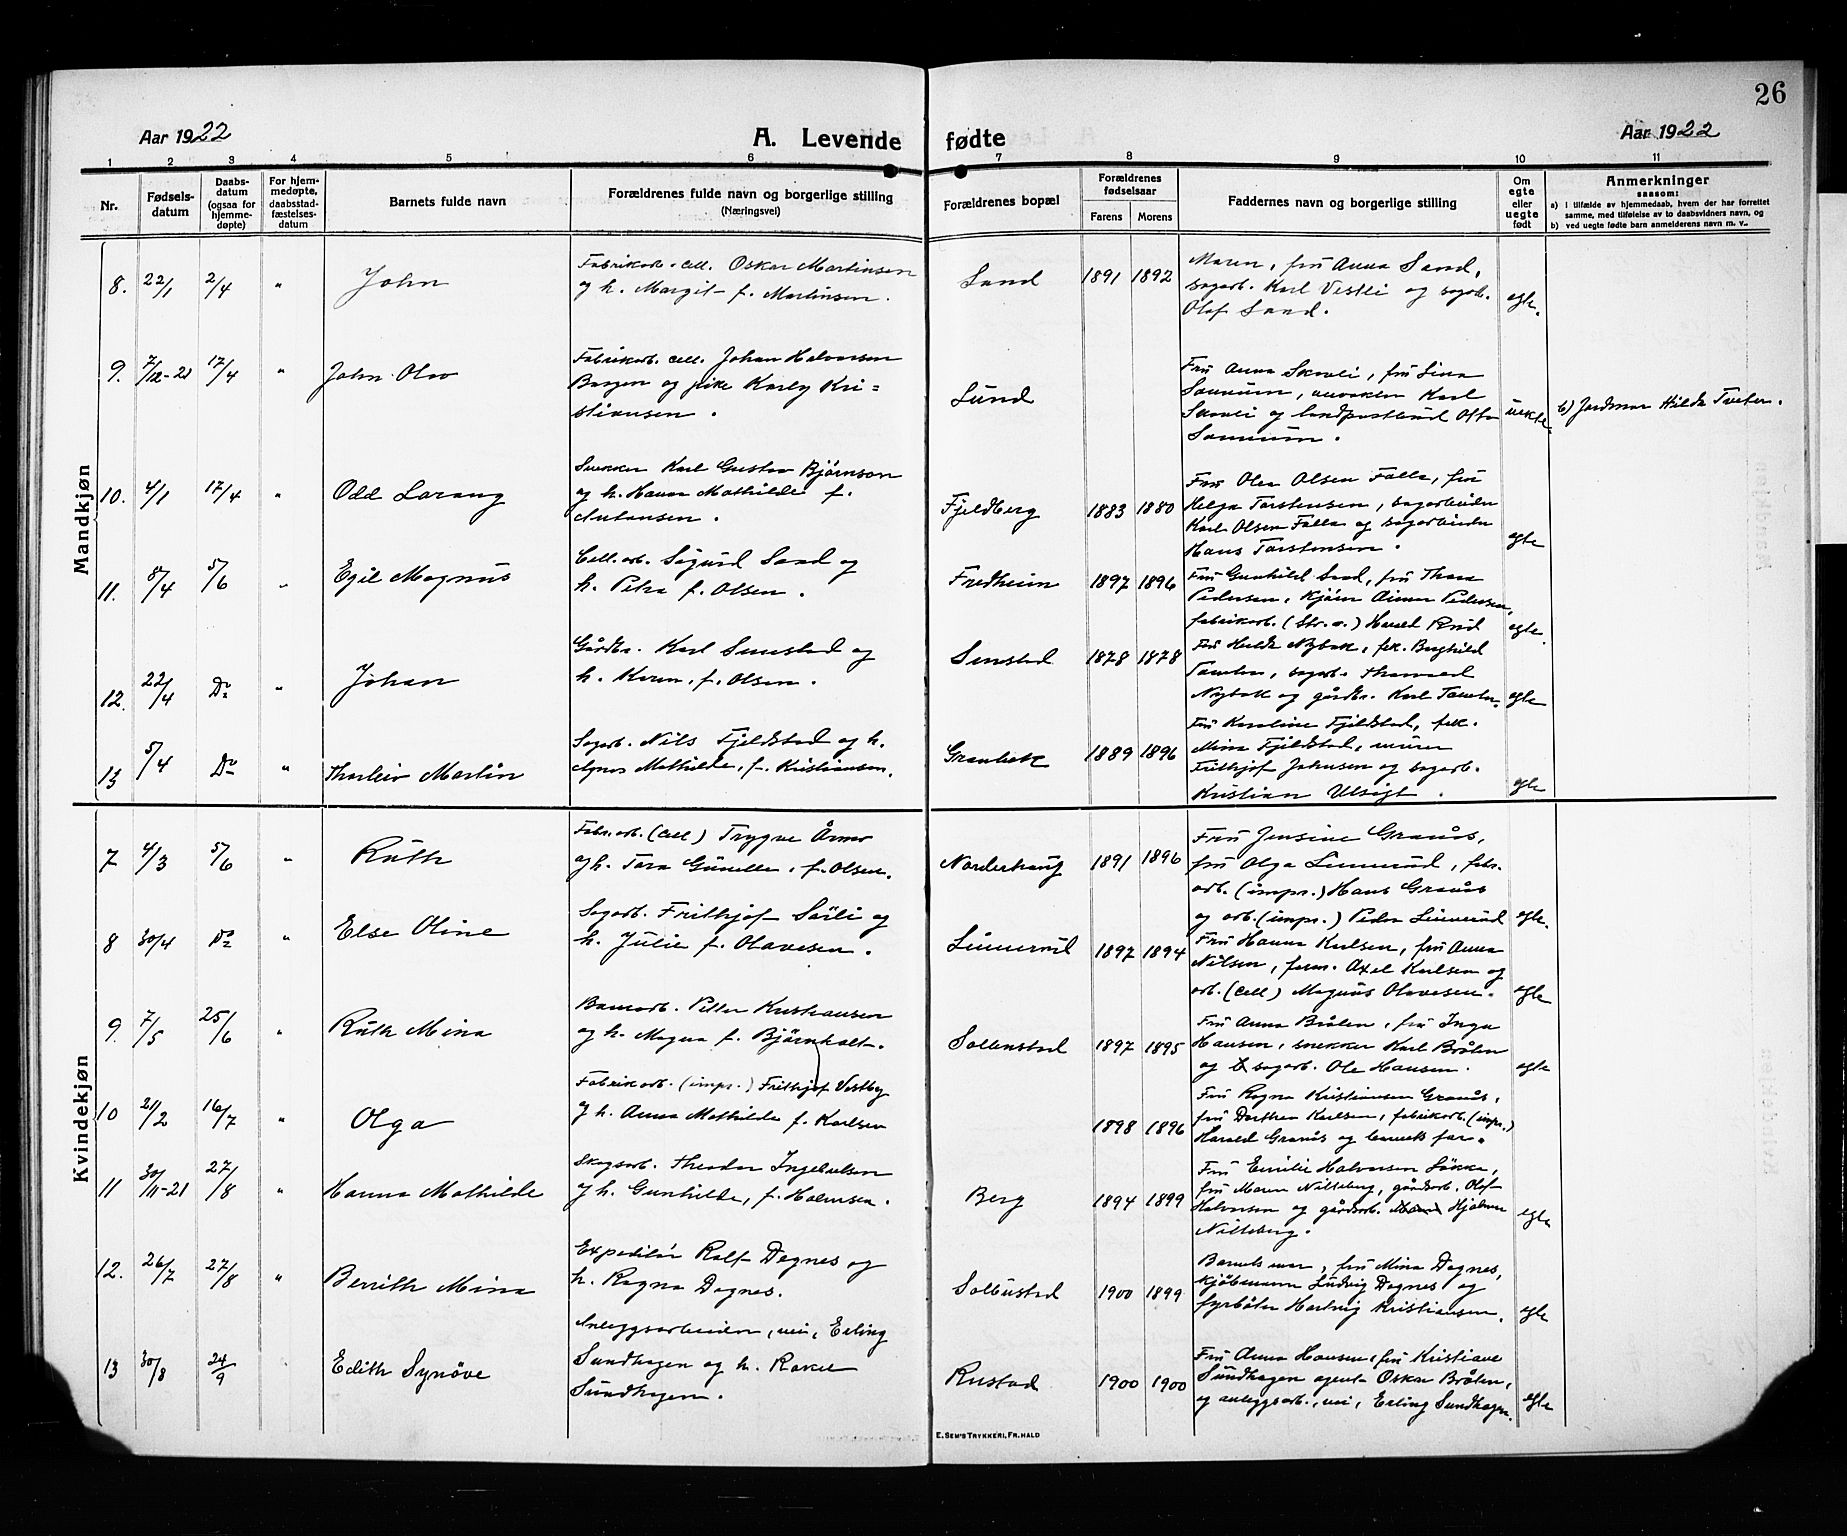 26
Aar 1922
A. Levende fødte
Aar 1922
1 2 3 4 5 6 7 8 9 10 11
Nr.
Fødsels-
datum
Daabs-
datum
(ogsaa for
hjemme-
døpte)
For hjem-
medøpte,
daabsstad-
fæstelses-
datum
Barnets fulde navn
Forældrenes fulde navn og borgerlige stilling
(Næringsvei)
Forældrenes bopæl
Forældrenes
fødselsaar
Farens Morens
Faddernes navn og borgerlige stilling
Om
egte
eller
uegte
født
Anmerkninger
saasom:
a) i tilfælde av hjemmedaab, hvem der har forrettet
samme, med tilføielse av to daabsvidners navn, og
b) ved uegte fødte barn anmelderens navn m. v..
Mandkjøn
8. 22/1 2/4 " John
Fabrikarb. cell. Oskar Martinsen
og h. Margit f. Martinsen.
Sand 1891 1892
Moren, fru Anna Sand,
sagarb. Karl Vestli og sagarb.
Olof Sand.
egte.
9. 7/12-21 17/4 " John Olav
Fabrikarb. cell. Johan Halvorsen
Bergen og pike Karly Kri=
stiansen.
Lund
Fru Anna Skovli, fru Lina
Sannum, snekker Karl
Skovli og landpostbud Otto
Sannum.
uekte.
b) Jordmor Hilda Tveter.
10. 4/1 17/4 " Odd Lorang
Snekker Karl Gustav Bjørnson
og h. Hanna Mathilde f.
Antonsen.
Fjeldberg 1883 1880
Fru Olea Olsen Falla, fru
Helga Torstensen, sagarbeider
Karl Olsen Falla og sagarbeider
Hans Torstensen.
egte
11. 8/4 5/6 " Egil Magnus
Cell. arb. Sigurd Sand og
h. Petra f. Olsen.
Fredheim 1897 1896
Fru Gunhild Sand, fru Thora
Pedersen, kjører Einar Pedersen,
fabrikarb. (Str. o.) Harald Rud
egte.
12. 22/4 Do " Johan
Gårdbr. Karl Smestad og
h. Karen, f. Olsen.
Smestad 1878 1878
Fru Hulda Nybak, frk. Borghild
Tømten, sagarb. Thorvald
Nybak og gårdbr. Karl Tømten.
egte
13 5/4 Do " Thorleiv Martin
Sagarb. Nils Fjeldstad og h.
Agnes Mathilde, f. Kristiansen.
Granbakk 1889 1896
Fru Karoline Fjeldstad, frk.
Mina Fjeldstad, murer
Frithjof Johnsen og sagarb.
Kristian Utsigt.
egte
Kvindekjøn
7 4/3 5/6 " Ruth
Fabr. arb. (cell) Trygve Årmo
og h. Tora Gunelle, f. Olsen.
Norderhaug 1891 1896
Fru Jensine Granås,
fru Olga Linnerud, fabr.
arb. (impr.) Hans Granås
og arb. (impr.) Peder Linnerud
egte.
8 30/4 Do " Else Oline
Sagarb. Frithjof Sørli og
h. Julie f. Olavesen.
Linnerud 1897 1894
Fru Hanna Karlsen, fru Anna
Nilsen, form. Axel Karlsen og
arb. (cell) Magnus Olavesen.
egte
9. 7/5 25/6 " Ruth Mina
Banearb. Petter Kristiansen
og h. Magna f. Bjørnholt.
Sollenstad 1897 1895
Fru Anna Bråten, fru Inga
Hansen, snekker Karl Bråten
og sagarb. Ole Hansen.
egte
10 21/2 16/7 " Olga
Fabrikarb. (impr.) Frithjof Vestby
og h. Anna Mathilde f. Karlsen
1898 1896
Fru Ragna Kristiansen Granås,
fru Dorthea Karlsen, fabrikarb. (impr.)
Harald Granås og barnets far.
11 30/11-21 27/8 " Hanna Mathilde
Skogsarb. Theodor Ingebretsen
og h. Gunhilde, f. Halvorsen.
Berg 1894 1899
Fru Emilie Halvorsen Løkke,
fru Maren Nitteberg, gårdsarb. Olof
Halvorsen og gårdsarb. Hjalmar
Nitteberg.
egte
12. 26/7 27/8 " Berith Mina
Expeditør Rolf Dognes og
h. Ragna Dognes.
Solbustad 1900 1899
Barnets mor, fru Mina Dognes,
kjøbmann Ludvig Dognes og
fyrbøter Hartvig Kristiansen.
egte
13 30/8 24/9 Edith Synøve
Anleggsarbeider, mi, Erling
Sundhagen og h. Rakel
Sundhagen.
Rustad 1900 1900
Fru Anna Hansen, fru Kristiane
Sundhagen agent Oskar Bråten,
og anleggsarb., mi, Erling Sundhagen.
egte
E. SEM'S TRYKKERI, FR. HALD